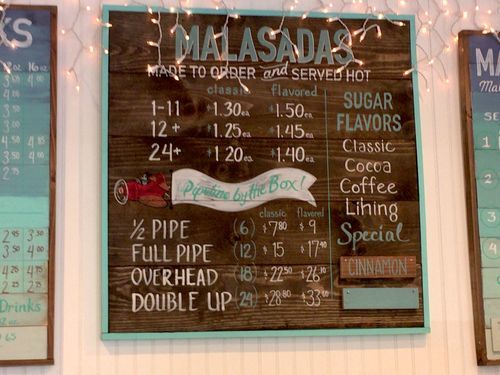 MALASADAS
MADE TO ORDER and SERVED HOT
classic flavored
1-11 $1.30ea $1.50ea
12+ $1.25ea $1.45ea
24+ $1.20ea $1.40ea
Pipeline by the Box!
classic flavored
½ PIPE (6) $7.80 $9
FULL PIPE (12) $15 $17.40
OVERHEAD (18) $22.50 $26.10
DOUBLE UP (24) $28.80 $33.60
SUGAR
FLAVORS
Classic
Cocoa
Coffee
Lihing
Special
CINNAMON
KS
12 oz 16 oz
Drinks
MA
SE
1
2
3
4